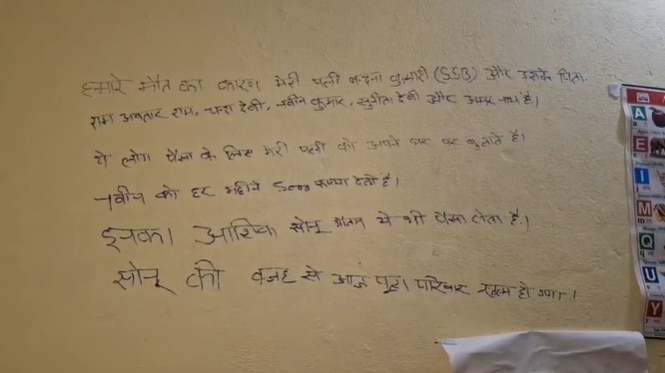 हमारे मौत का कारण मेरी पत्नी कुमारी (SSB) और उसके पिता
राम अवतार राम, चन्दा देवी, नवीन कुमार, सुनीता देवी और अमर नाथ है।
ये लोग पैसा के लिए मेरी पत्नी को अपने घर पर बुलाते हैं।
नवीन को हर महीने 5000 रूपया देती है।
इनका आशिक सोनू भी पैसा लेता है।
सोनू की वजह से आज पूरा परिवार खत्म हो गया।
A
E
I
M
Q
U
Y